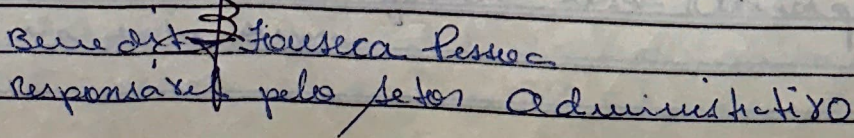 Benedito Fonseca Pessoa
Responsável pelo setor administrativo